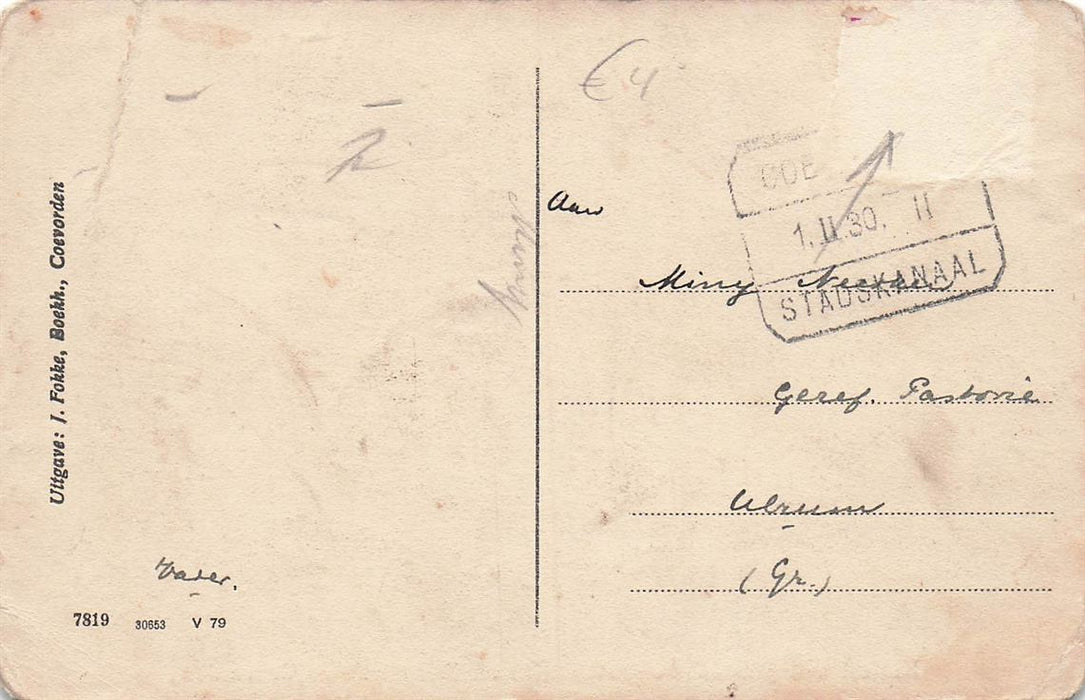 Uitgave: J. Fokke, Boekh., Coevorden
Vader.
7819 30653 V 79
Miny
€ 4
COE
1.II.30. II
STADSKANAAL
Aan
Miny
Geref. Pastorie
Ulrum
(Gr.)